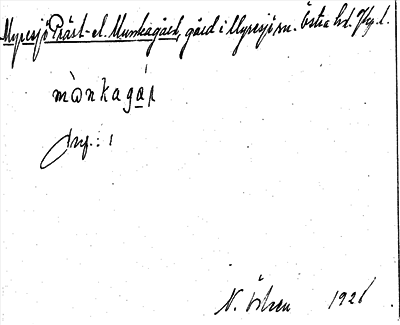 Myresjö Präst- el. Munkagård, gård i Myresjö sn. Östra hd. Jkp. l.
mùnkagáɽ
Inf.: 1
N. Ölzeu 1926